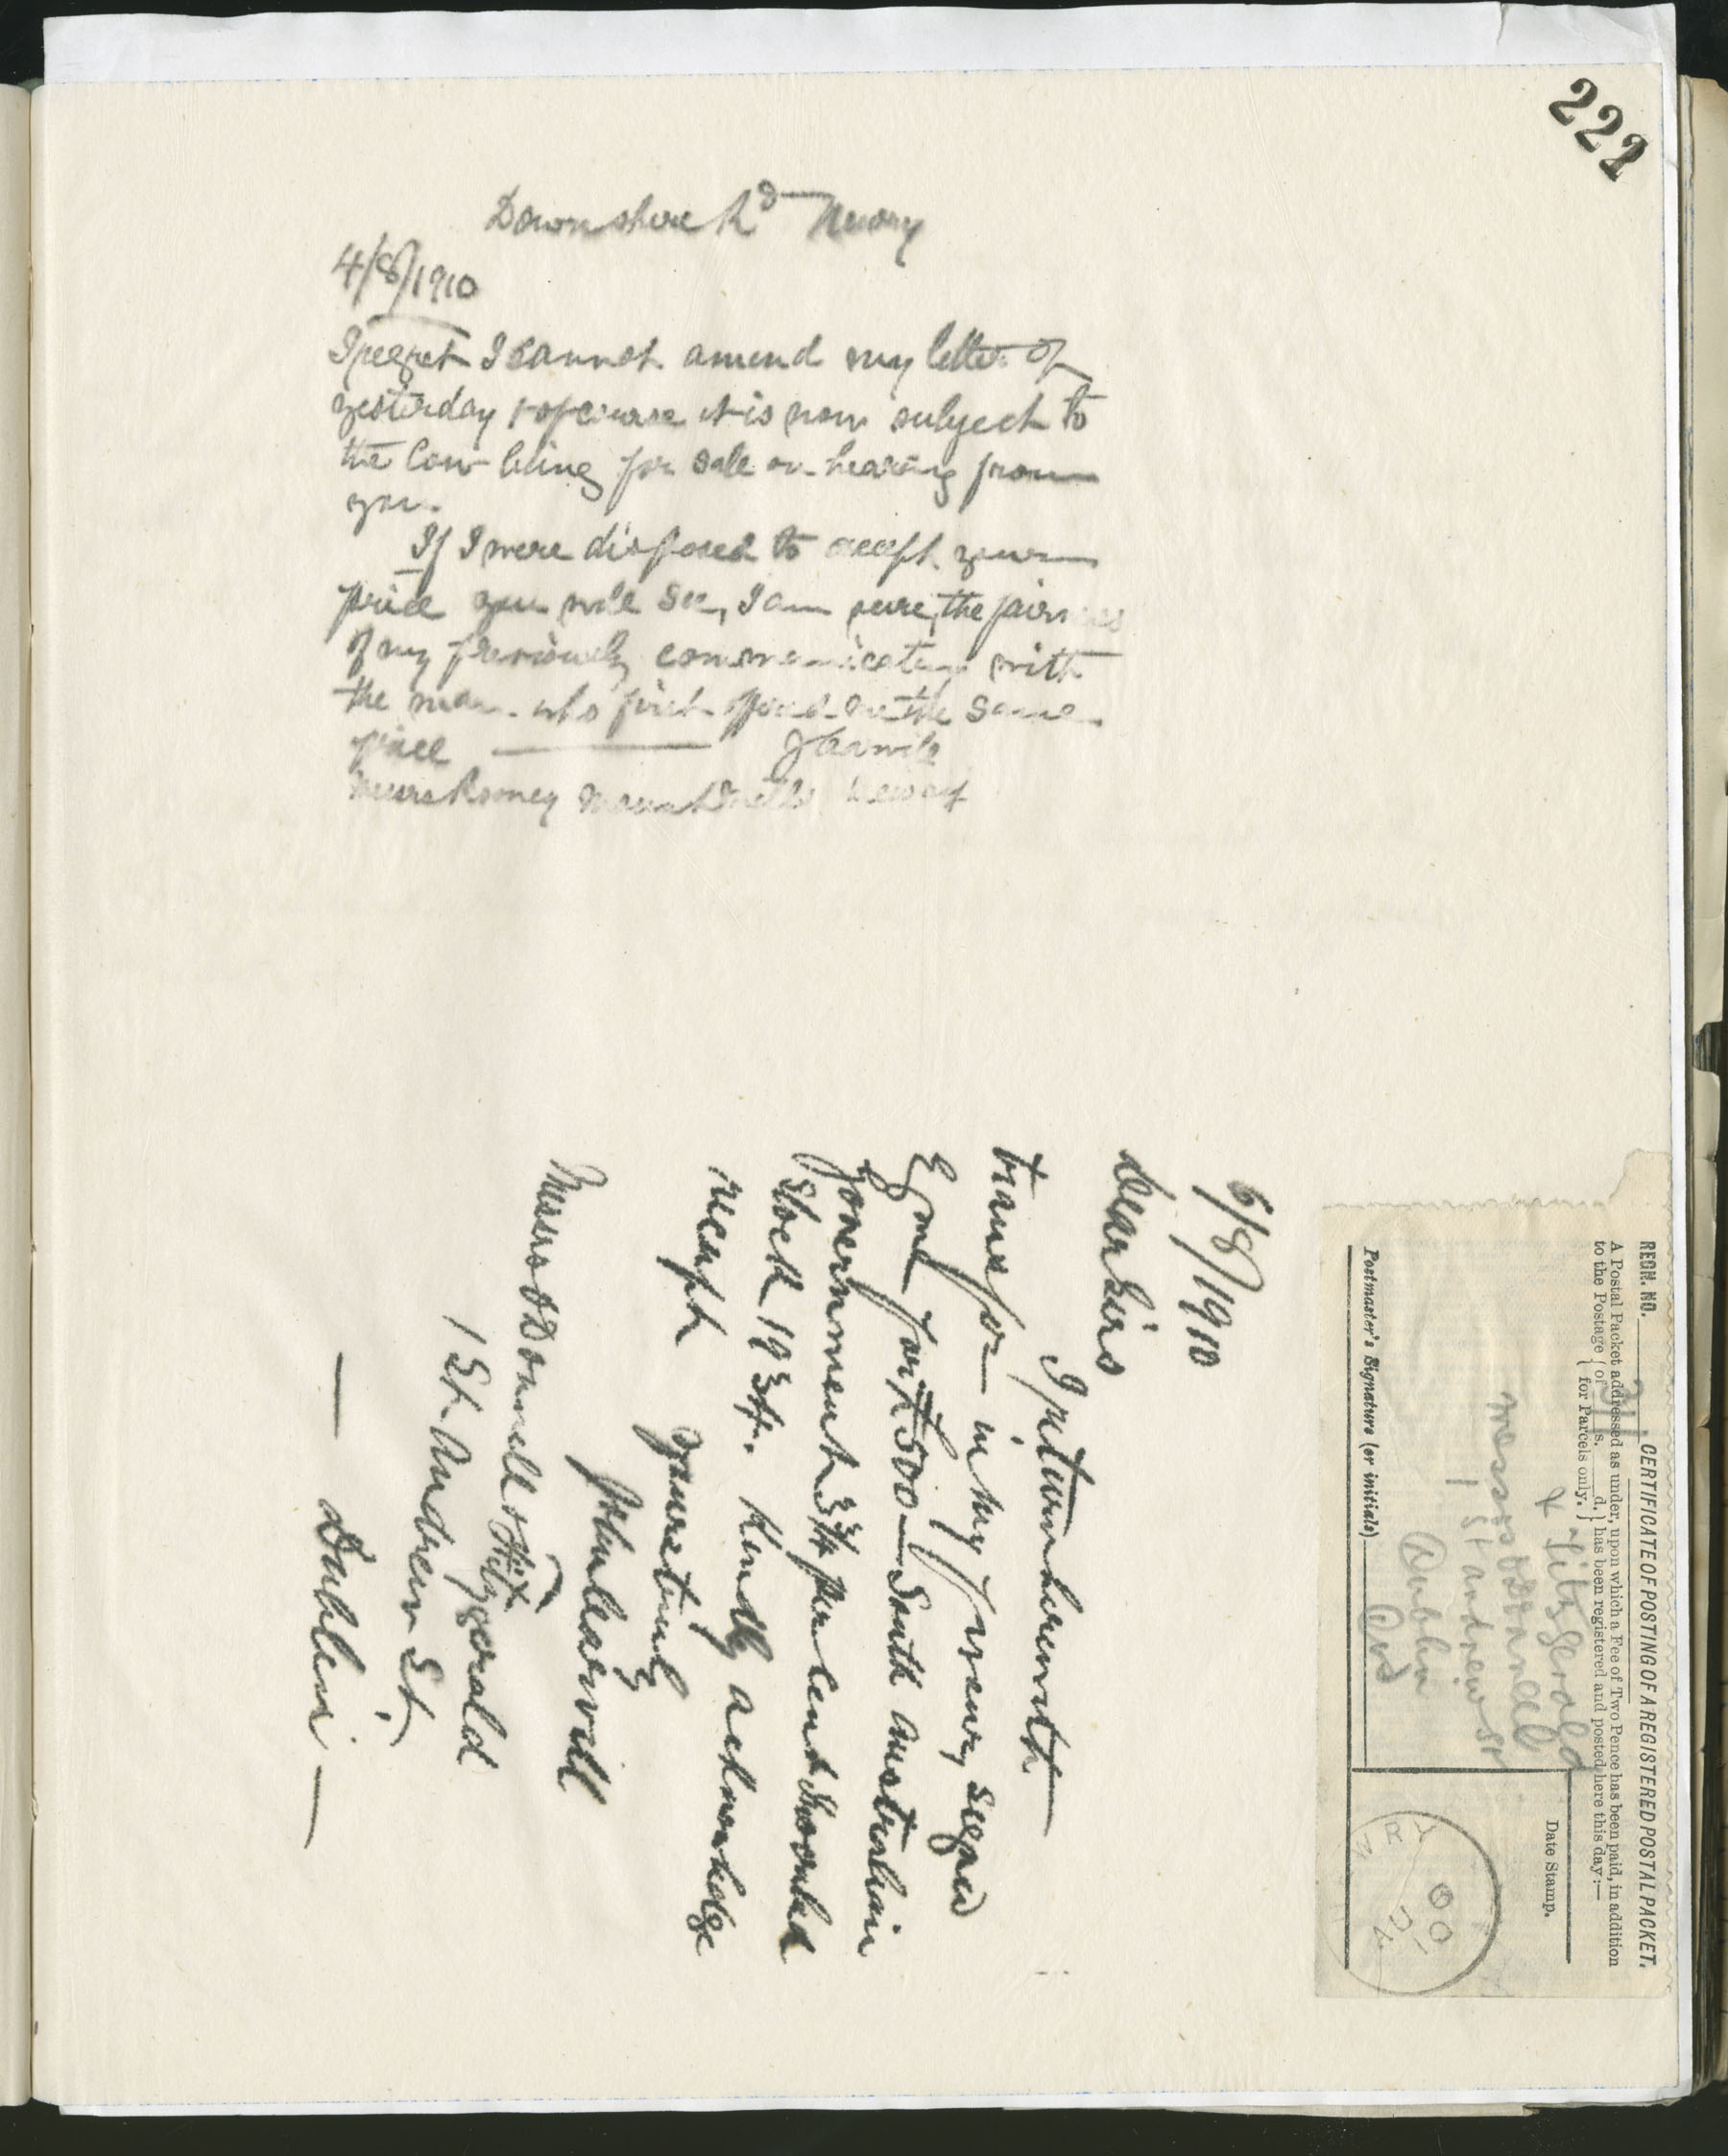 222
Downshire Rd Newry
4/8/1910
I regret I cannot amend my letter of
yesterday & of course it is now subject to
the Cow being for sale on hearing from
you.
If I were disposed to accept your
price you will see, I am sure, the fairness
of my previously communicating with
the man who first offered me the same
price
Messrs Rooney Newry
6/8/1910
Dear Sirs
I return herewith
transfer in my favour, signed
by me for £500 — South Australian
Government 3 3/4 per Cent Inscribed
Stock Kindly acknowledge
receipt
Yours truly
Messrs O'Donnell & Fitzgerald
1 St. Andrew St.
— Dublin —
REGN. NO. CERTIFICATE OF POSTING OF A REGISTERED POSTAL PACKET.
A Postal Packet addressed as under, upon which a Fee of Two Pence has been paid, in addition
to the Postage { of s. d. } has been registered and posted here this day:—
{ for Parcels only. }
& Fitzgerald
Messrs O'Donnell
1 St Andrew St
Dublin
Date Stamp.
AU
10
Postmaster's Signature (or initials)